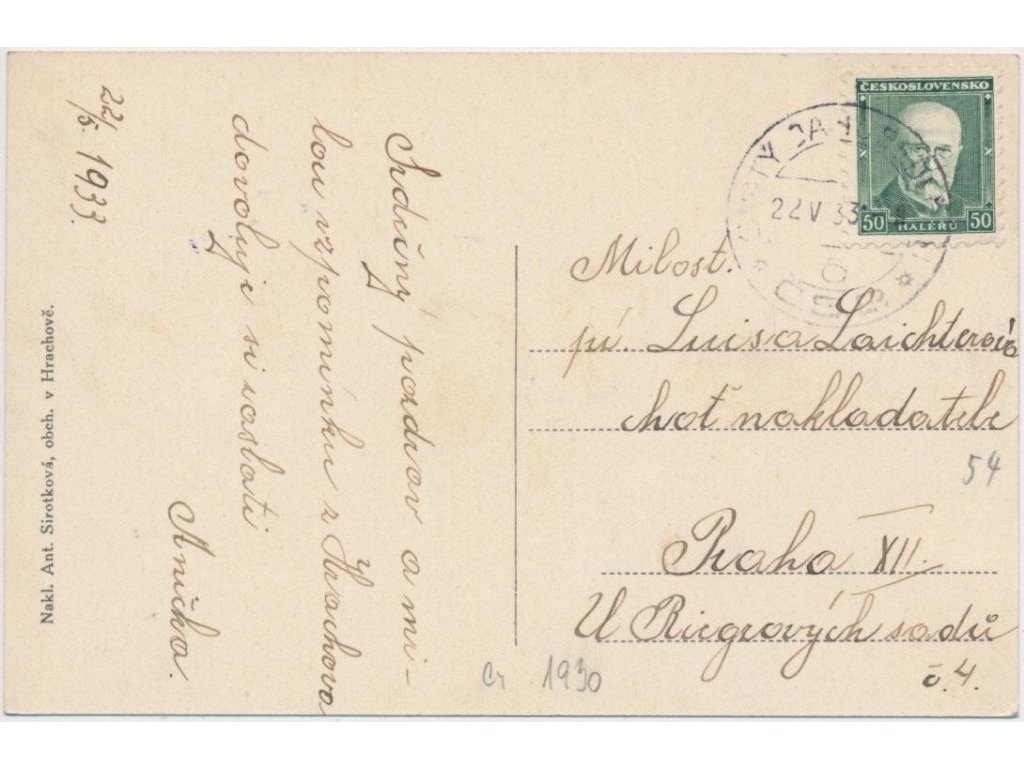 22/5. 1933.
Srdečný pozdrav a mi-
lou vzpomínku z Hrachova
dovoluji si zaslati
Anička.
Nakl. Ant. Sirotková, obch. v Hrachově.
ČESKOSLOVENSKO
50 HALÉŘŮ 50
22 V 33
Milost.
pí. Luisa Laichterová
choť nakladatele
54
Praha XII.
U Riegrových sadů
č. 4.
Cr 1930